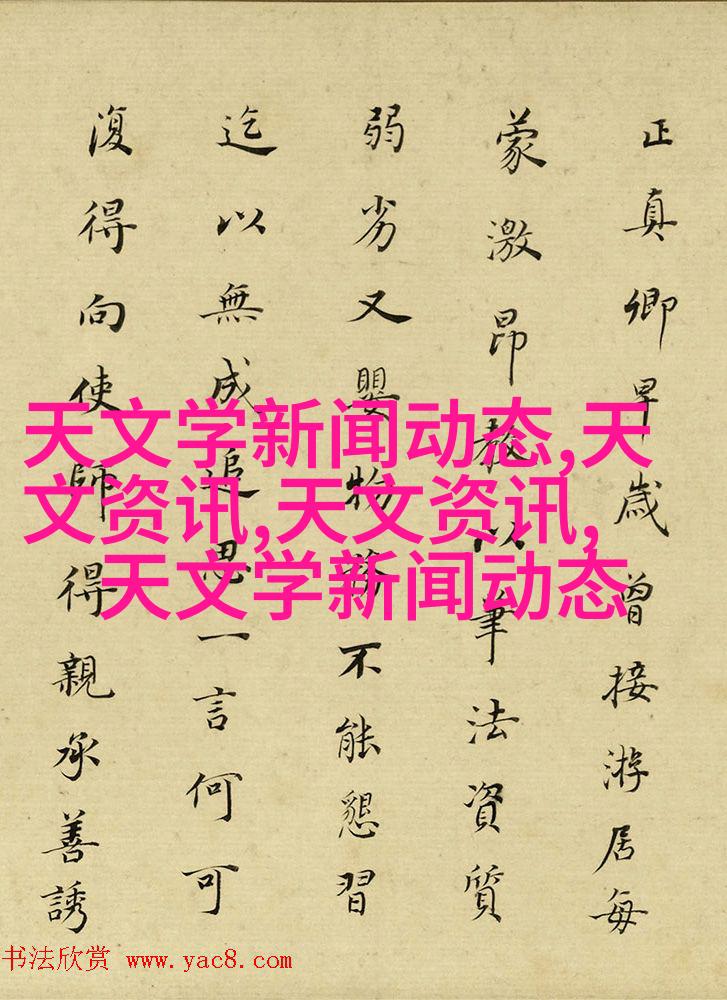 正真卿早歲曾接游居每
蒙激昂教以筆法資質
弱劣又嬰物務不能懇習
迄以無成追思一言何可
復得向使師得親承善誘
天文学新闻动态,天
文资讯,天文资讯,
天文学新闻动态
书法欣赏 www.yac8.com